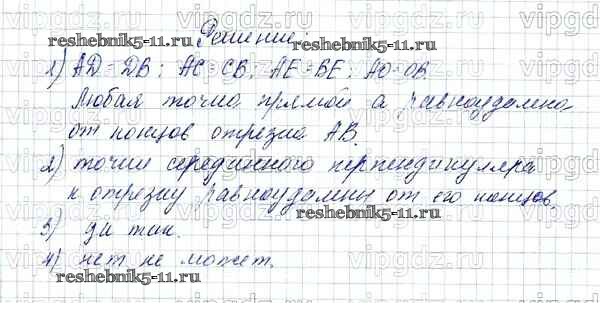 Решение:
1) AD = DB; AC = CB; AE = BE; AO = OB.
Любая точка прямой a равноудалена
от концов отрезка AB.
2) точки серединного перпендикуляра
к отрезку равноудалены от его концов.
3) да так.
4) нет не может.
reshebnik5-11.ru
reshebnik5-11.ru
reshebnik5-11.ru
reshebnik5-11.ru
vipgdz.ru
vipgdz.ru
vipgdz.ru
vipgdz.ru